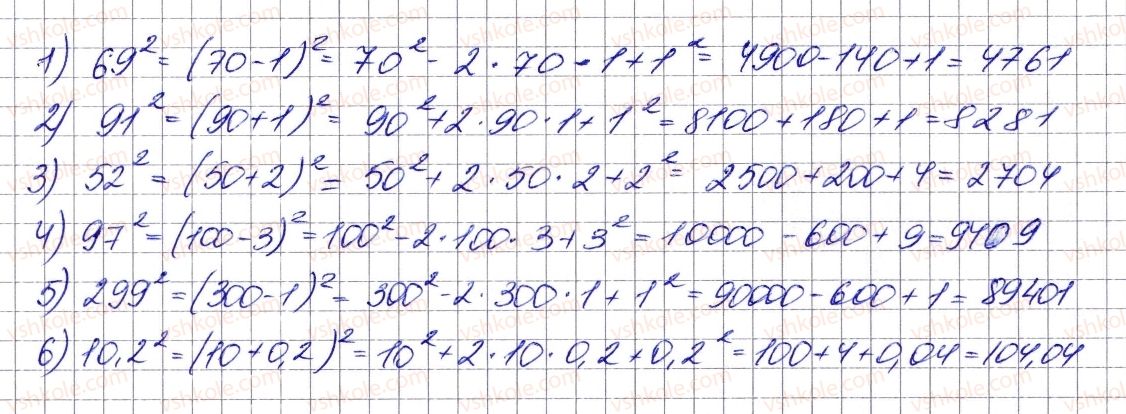 1) 69² = (70-1)² = 70² - 2·70·1+1² = 4900-140+1= 4761
2) 91² = (90+1)² = 90²+2·90·1+1² = 8100+180+1=8281
3) 52² = (50+2)² = 50²+2·50·2+2² = 2500+200+4=2704
4) 97² = (100-3)² = 100²-2·100·3+3² = 10000-600+9=9409
5) 299² = (300-1)² = 300²-2·300·1+1² = 90000-600+1=89401
6) 10,2² = (10+0,2)² = 10²+2·10·0,2+0,2² = 100+4+0,04=104,04